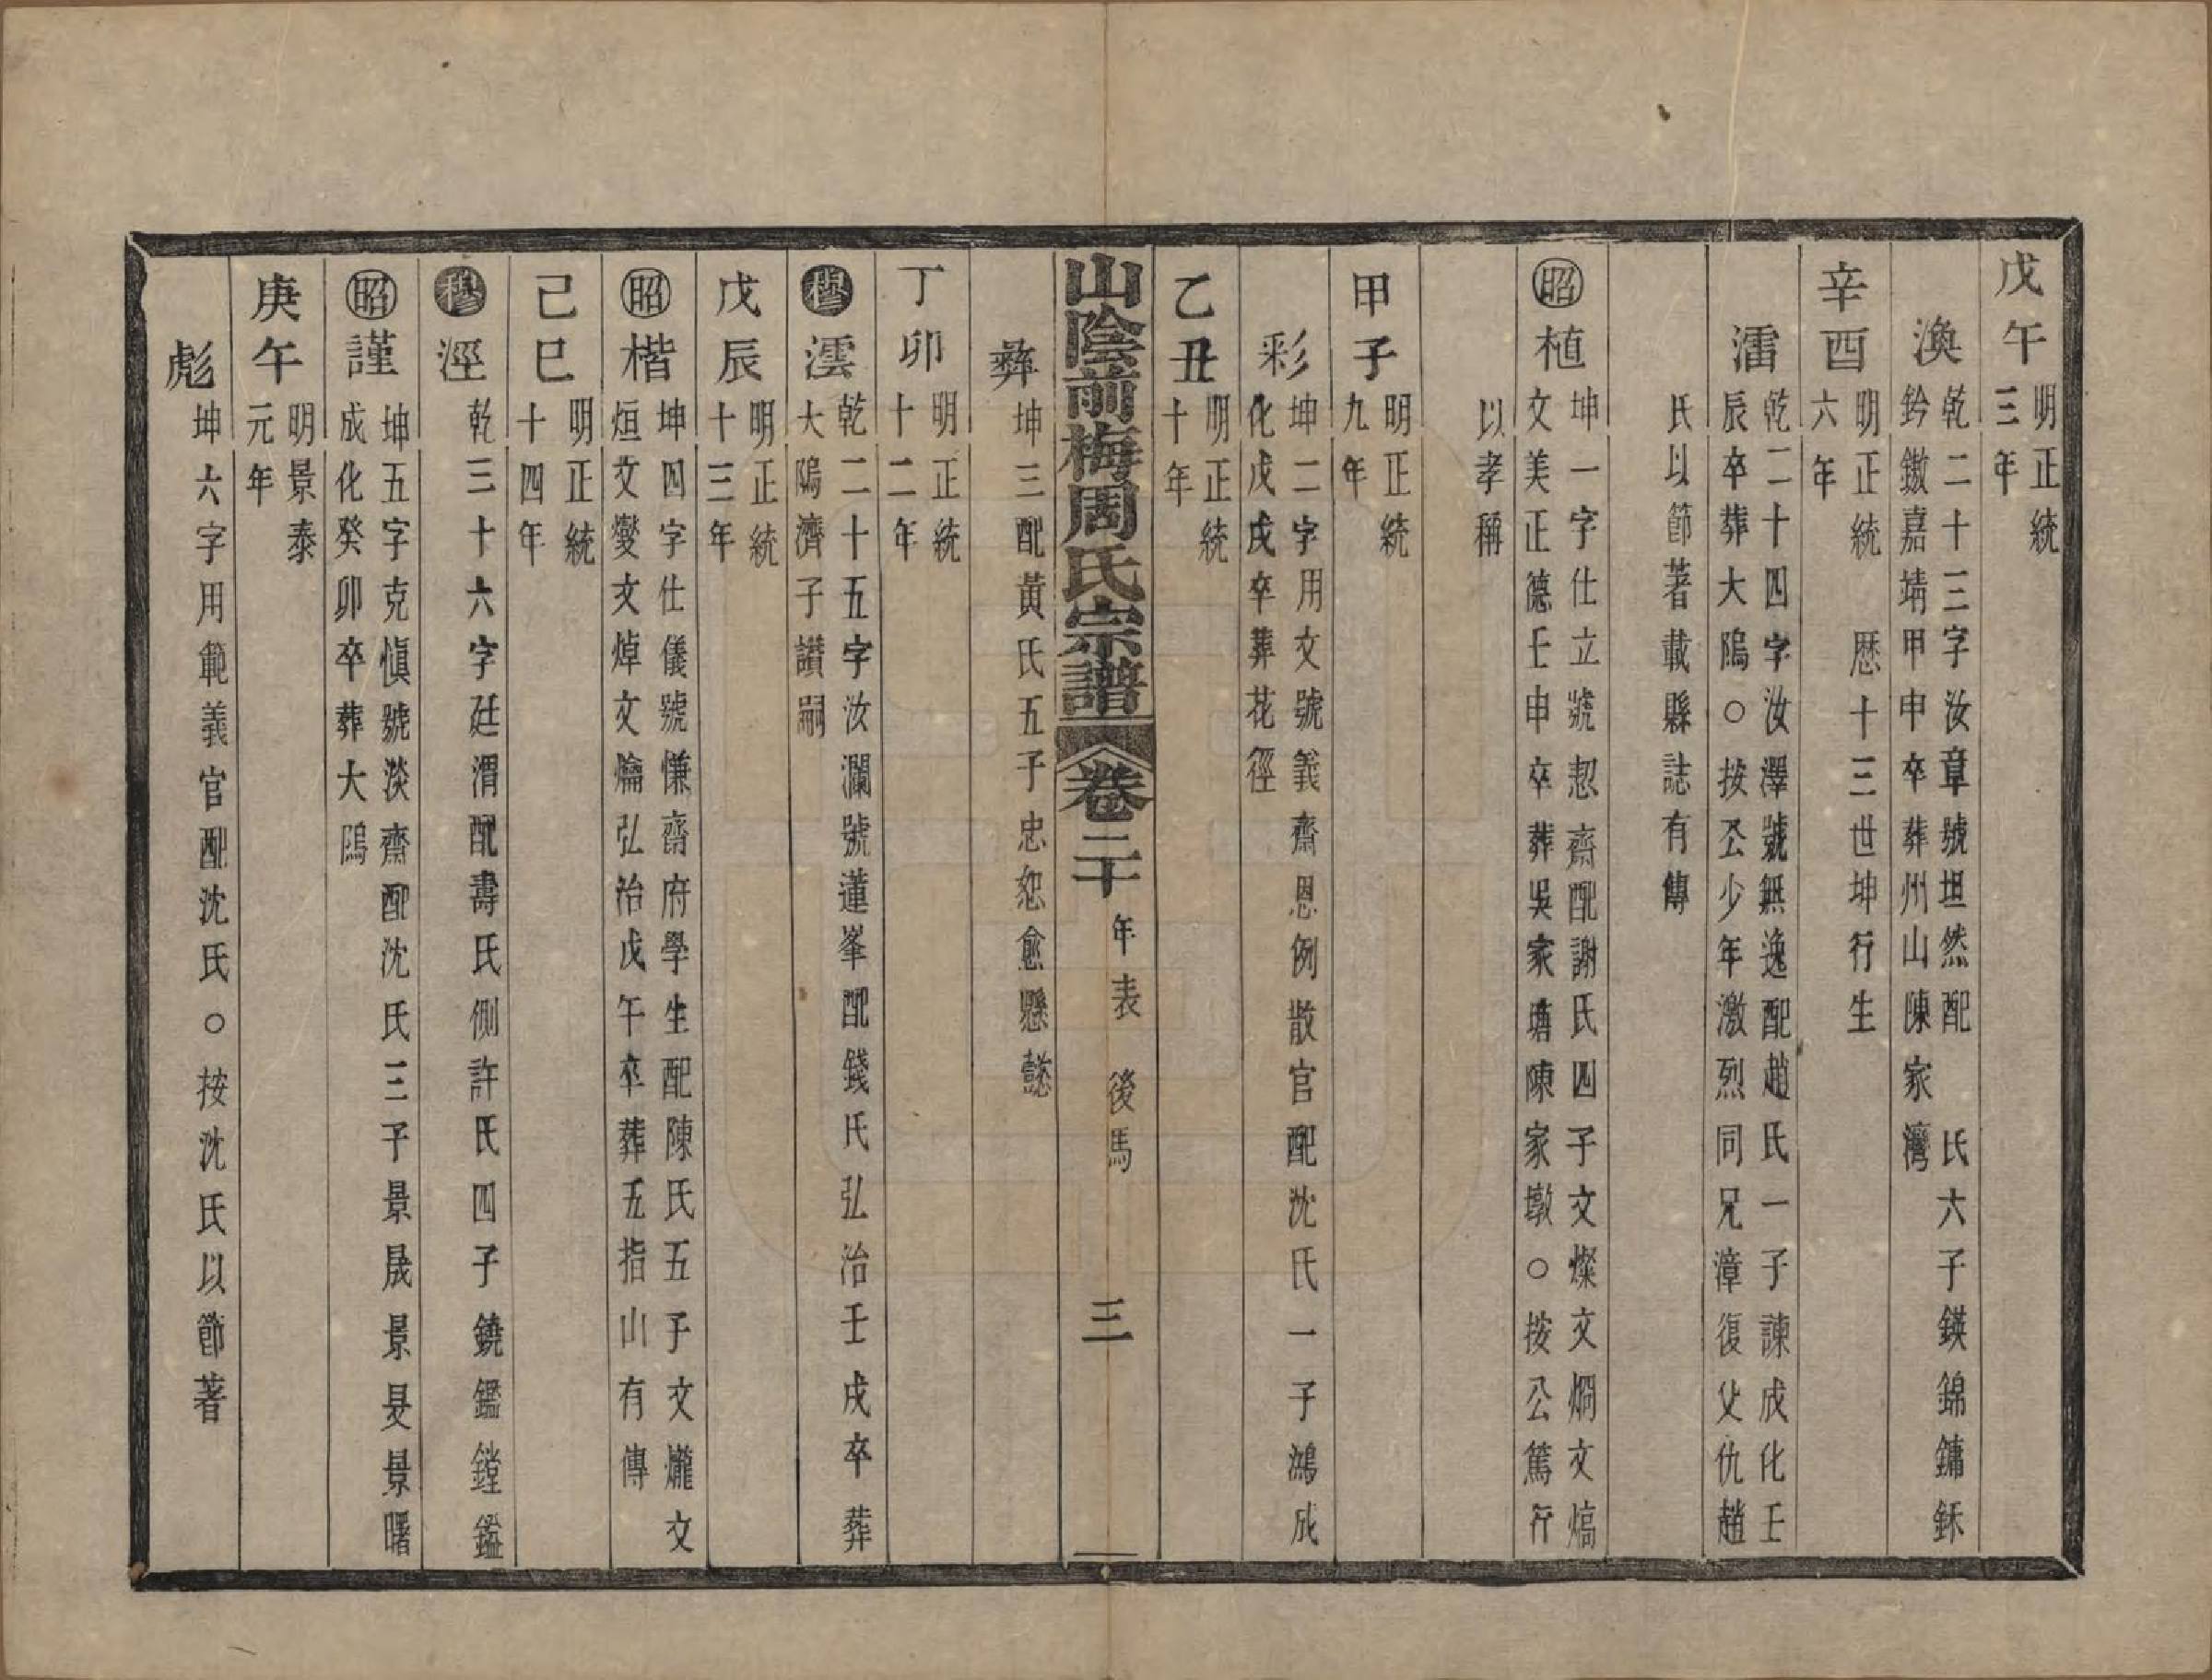 戊午 明正統
三年
渙 乾二十三字汝章號坦然配　氏六子鍈錦鏞鉌
鈐鏾嘉靖甲申卒葬州山陳家灣
辛酉 明正統　歷十三世坤行生
六年
澑 乾二十四字汝澤號無逸配趙氏一子諫成化壬
辰卒葬大隖○按公少年激烈同兄漳復父仇趙
氏以節著載縣誌有傳
昭 植 坤一字仕立號恝齋配謝氏四子文燦文烱文熇
文美正德壬申卒葬吳家塘陳家墩○按公篤行
以孝稱
甲子 明正統
九年
彩 坤二字用文號義齋恩例散官配沈氏一子鴻成
化戊戌卒葬花徑
乙丑 明正統
十年
山陰前梅周氏宗譜 卷二十 年表 後馬 三
彜 坤三配黃氏五子忠恕愈懸懿
丁卯 明正統
十二年
穆 澐 乾二十五字汝瀾號蓮峯配錢氏弘治壬戌卒葬
大隖濟子讃嗣
戊辰 明正統
十三年
昭 楷 坤四字仕儀號慊齋府學生配陳氏五子文爖文
烜文燮文焯文爚弘治戊午卒葬五指山有傳
己巳 明正統
十四年
穆 涇 乾三十六字廷渭配壽氏側許氏四子鐃鑑鏜鎰
昭 謹 坤五字克愼號淡齋配沈氏三子景晟景旻景曙
成化癸卯卒葬大隖
庚午 明景泰
元年
彪 坤六字用範義官配沈氏○按沈氏以節著